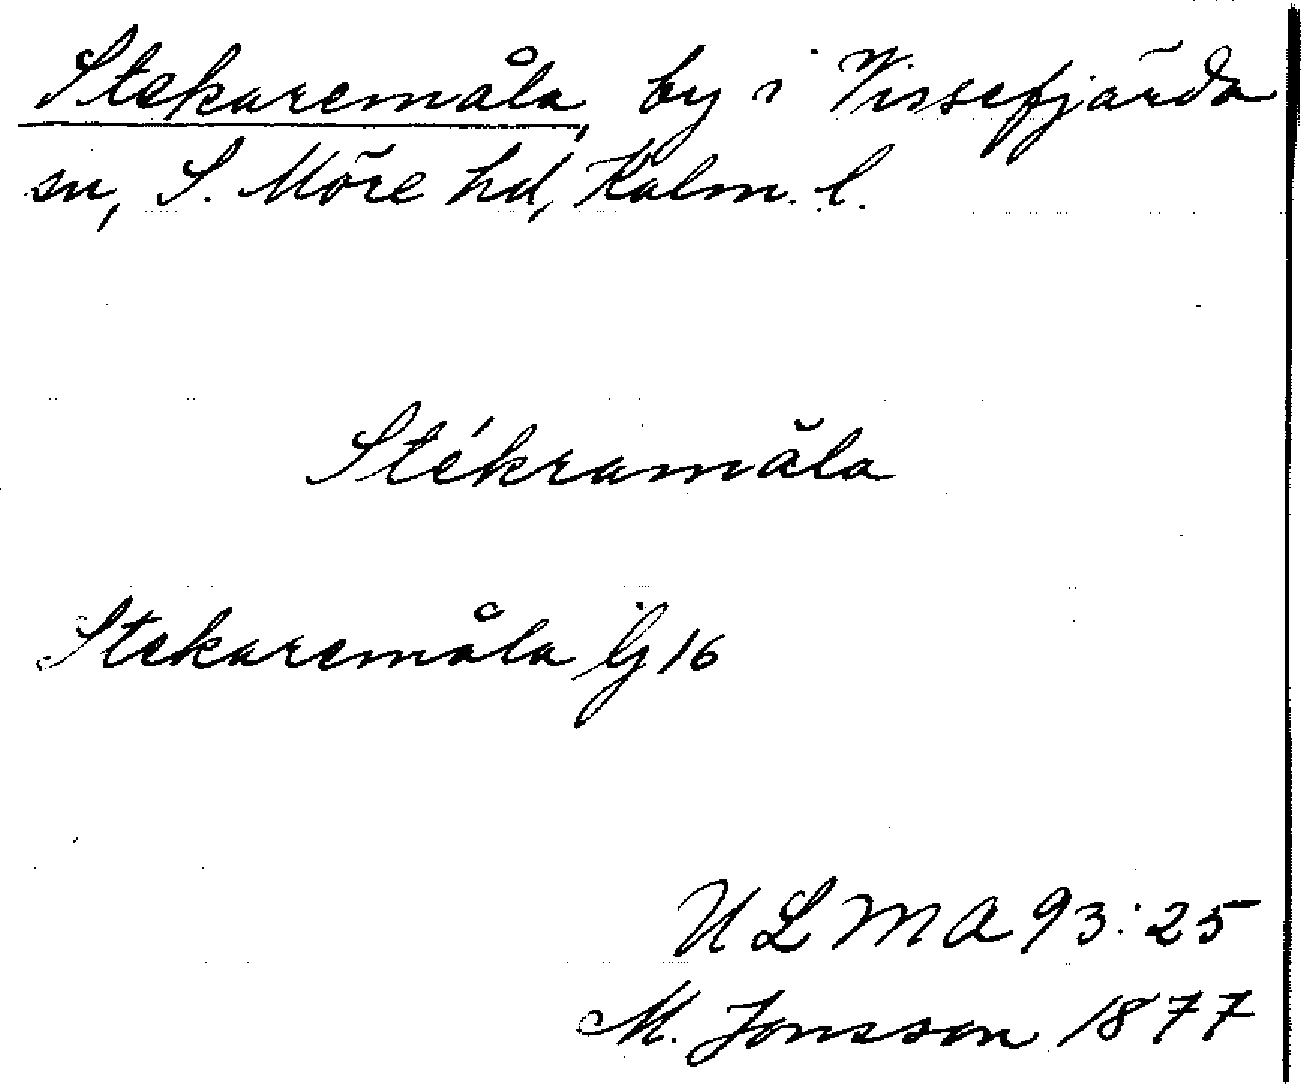 Stekaremåla, by i Vissefjärda
sn, S. Möre hd, Kalm. l.
Stékramåla
Stekaremåla Gj 16
ULMA 93:25
M. Jonsson 1877